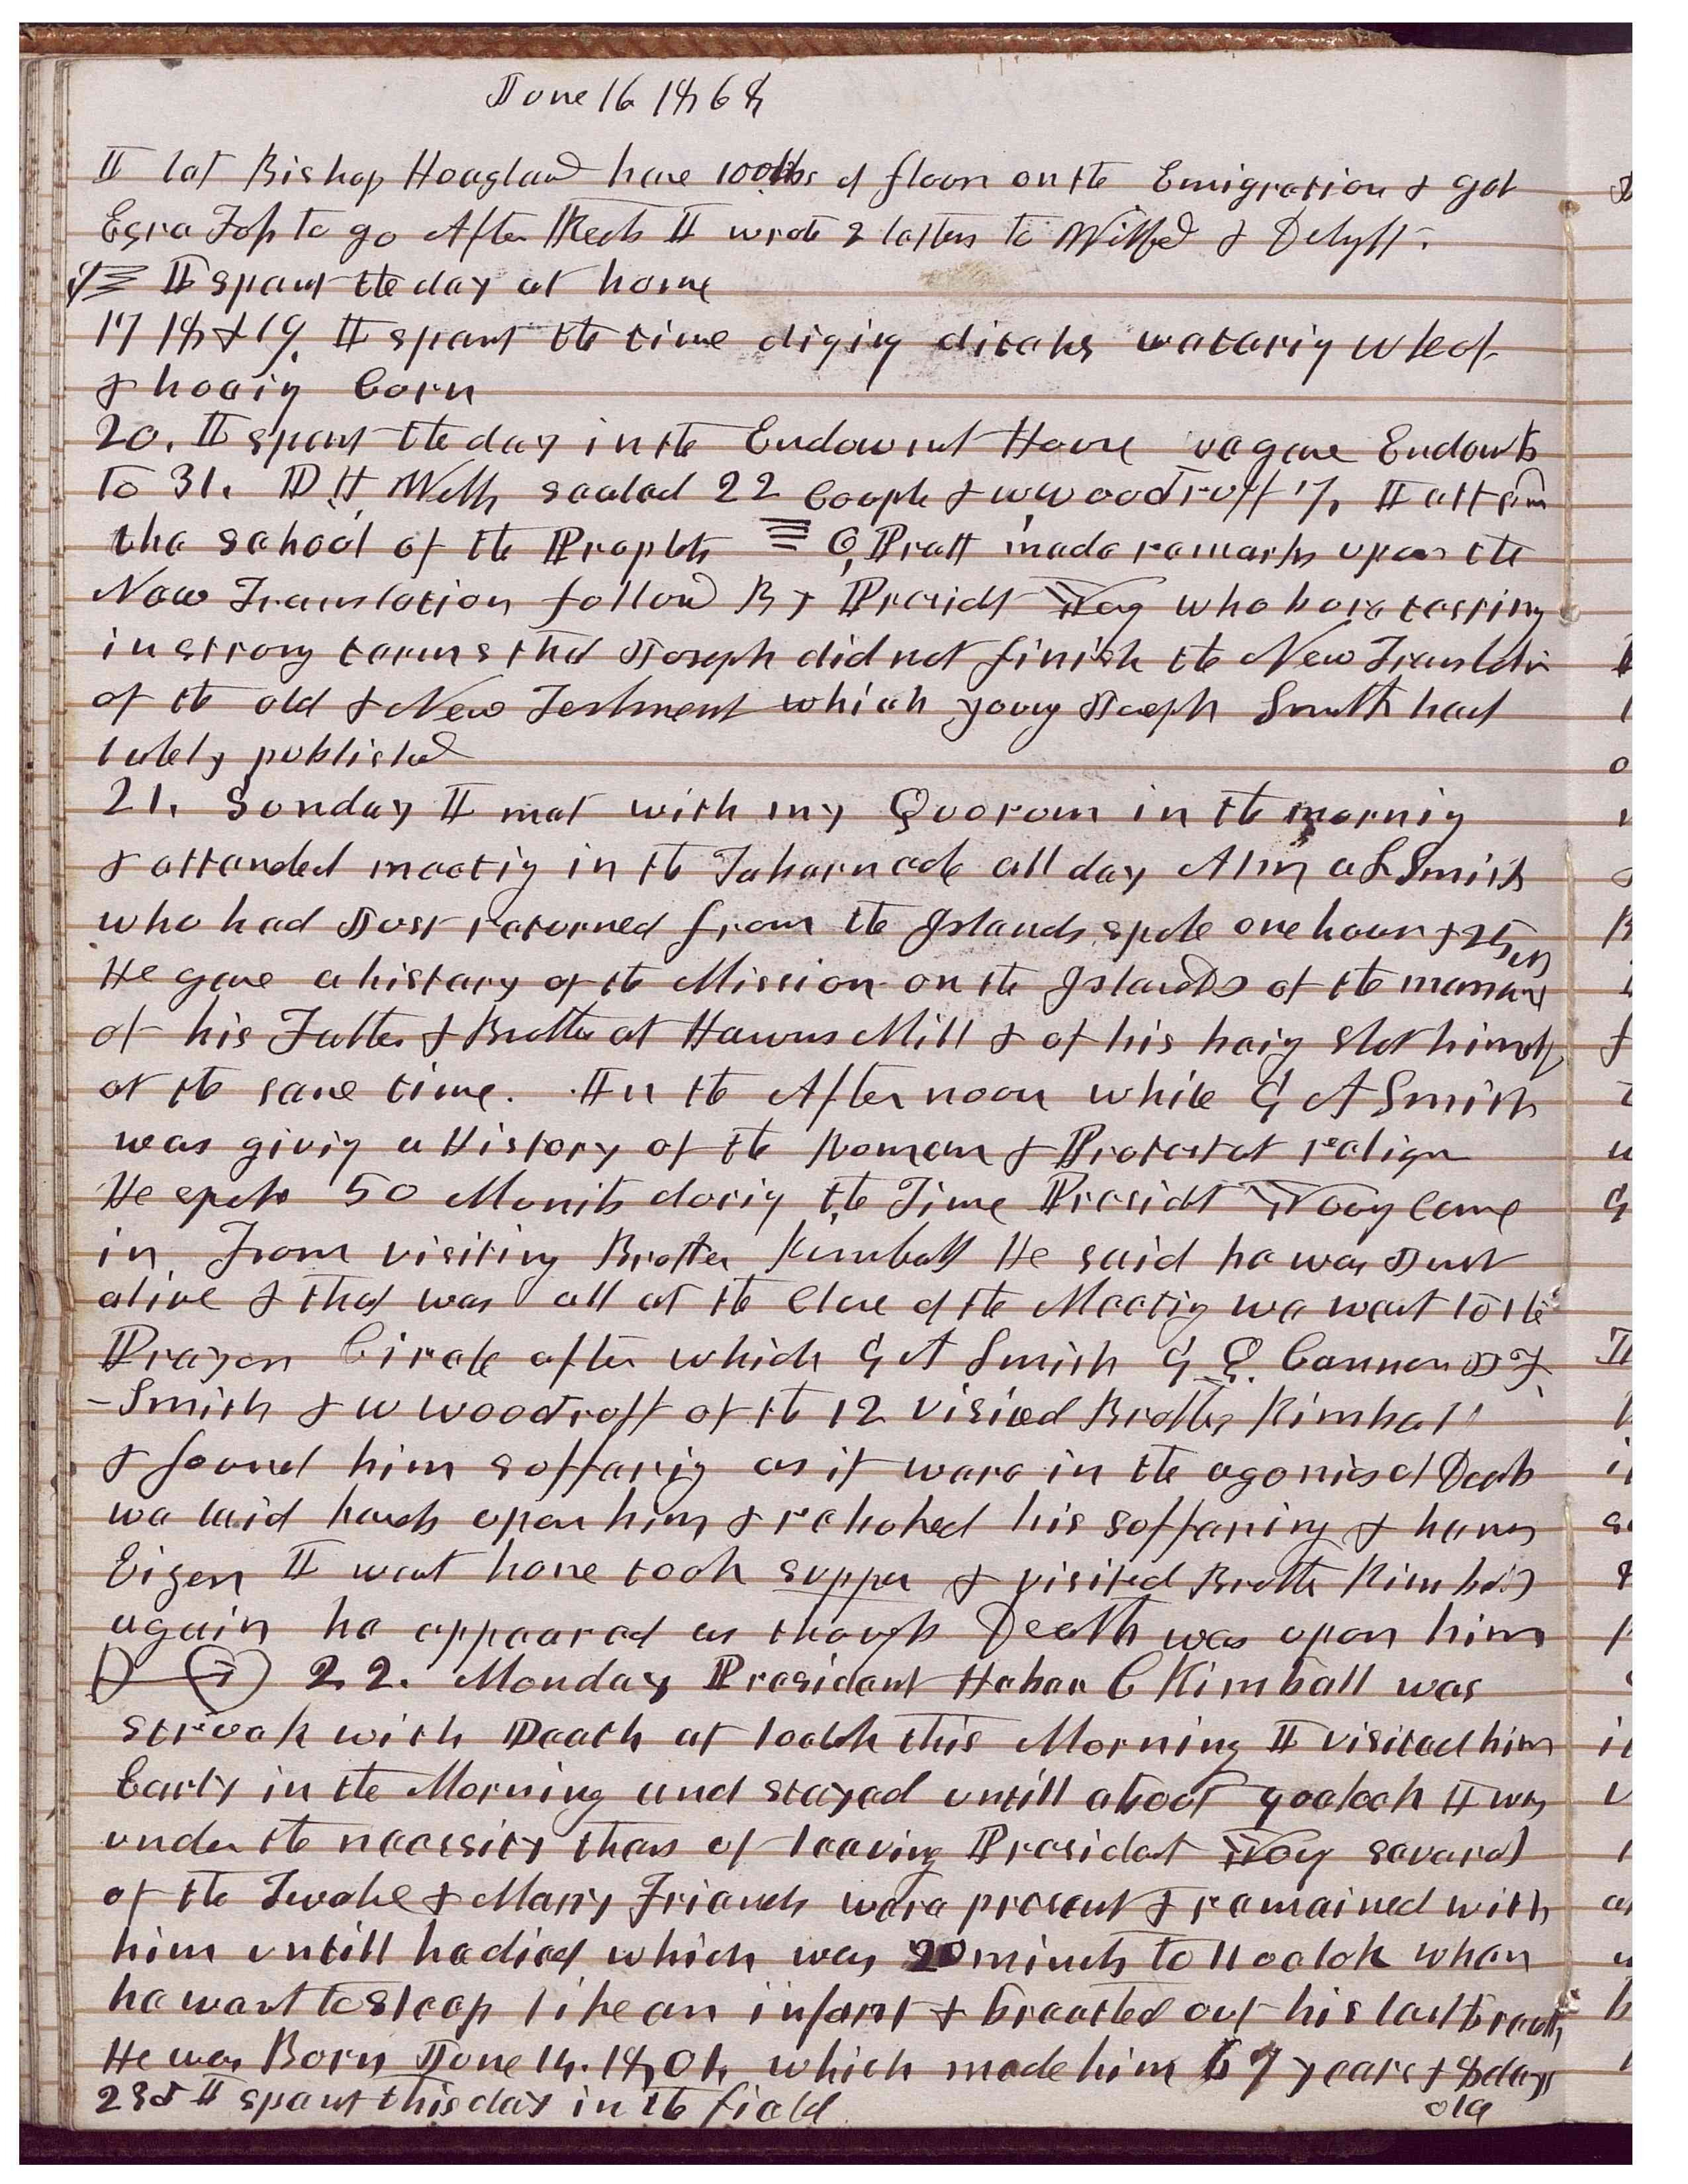 June 16 1868
I let Bishop Hoagland have 100 lbs of flour on the Emigration & got
Ezra Foss to go After them I wrote 2 letters to Wilford & Delight.
I spent the day at home
17 18 & 19. I spent the time diging ditches watering wheat
& hoeing Corn
20. I spent the day in the Endowmt House we gave Endowts
to 31. D H Wells sealed 22 Couple & W Woodruff 17, I attend
the School of the Prophets O, Pratt made remarks upon the
New Translation followed By Presidt Young who bore testimony
in strong terms that Joseph did not finish the New Translatin
of the old & New Testment which young Joseph Smith had
lately published
21. Sunday I met with my Quorum in the morning
& attended meetig in the Tabernacle all day Alma L Smith
who had Just returned from the Islands spoke one hour & 25 m
He gave a history of the Mission on the Islands of the
of his Father & Brother at Hawns Mill & of his being shot himself
at the same time. In the Afternoon while G A Smith
was givig a History of the Roman & Protestat religin
He spoke 50 Minuts during the Time Presidt Young came
in From visiting Brother Kimball He said he was Just
alive & that was all at the Close of the Meetig we went to the
Prayer Circle after which G A Smith G. Q. Cannon J F
- Smith & W Woodruff of the 12 visited Brother Kimball
& found him suffering as if ware in the agonies of Death
we laid hands upon him & rebuked his suffering & he was
Eizer I went home took supper & visited Brother Kimball
again he appeared as though Death was upon him
22. Monday President Heber C Kimball was
struck with Death at 1 oclok this Morning I visited him
Early in the Morning and stayed untill about 9 oclock I was
under the necessity then of leaving President Young several
of the Twelve & Many Friends ware present & remained with
him untill he died which was 20 minuts to 11 oclok when
he went to sleep like an infant & breathed out his last breath
He was Born June 14. 1801, which made him 67 years & 8 days
old
23d I spent this day in the field